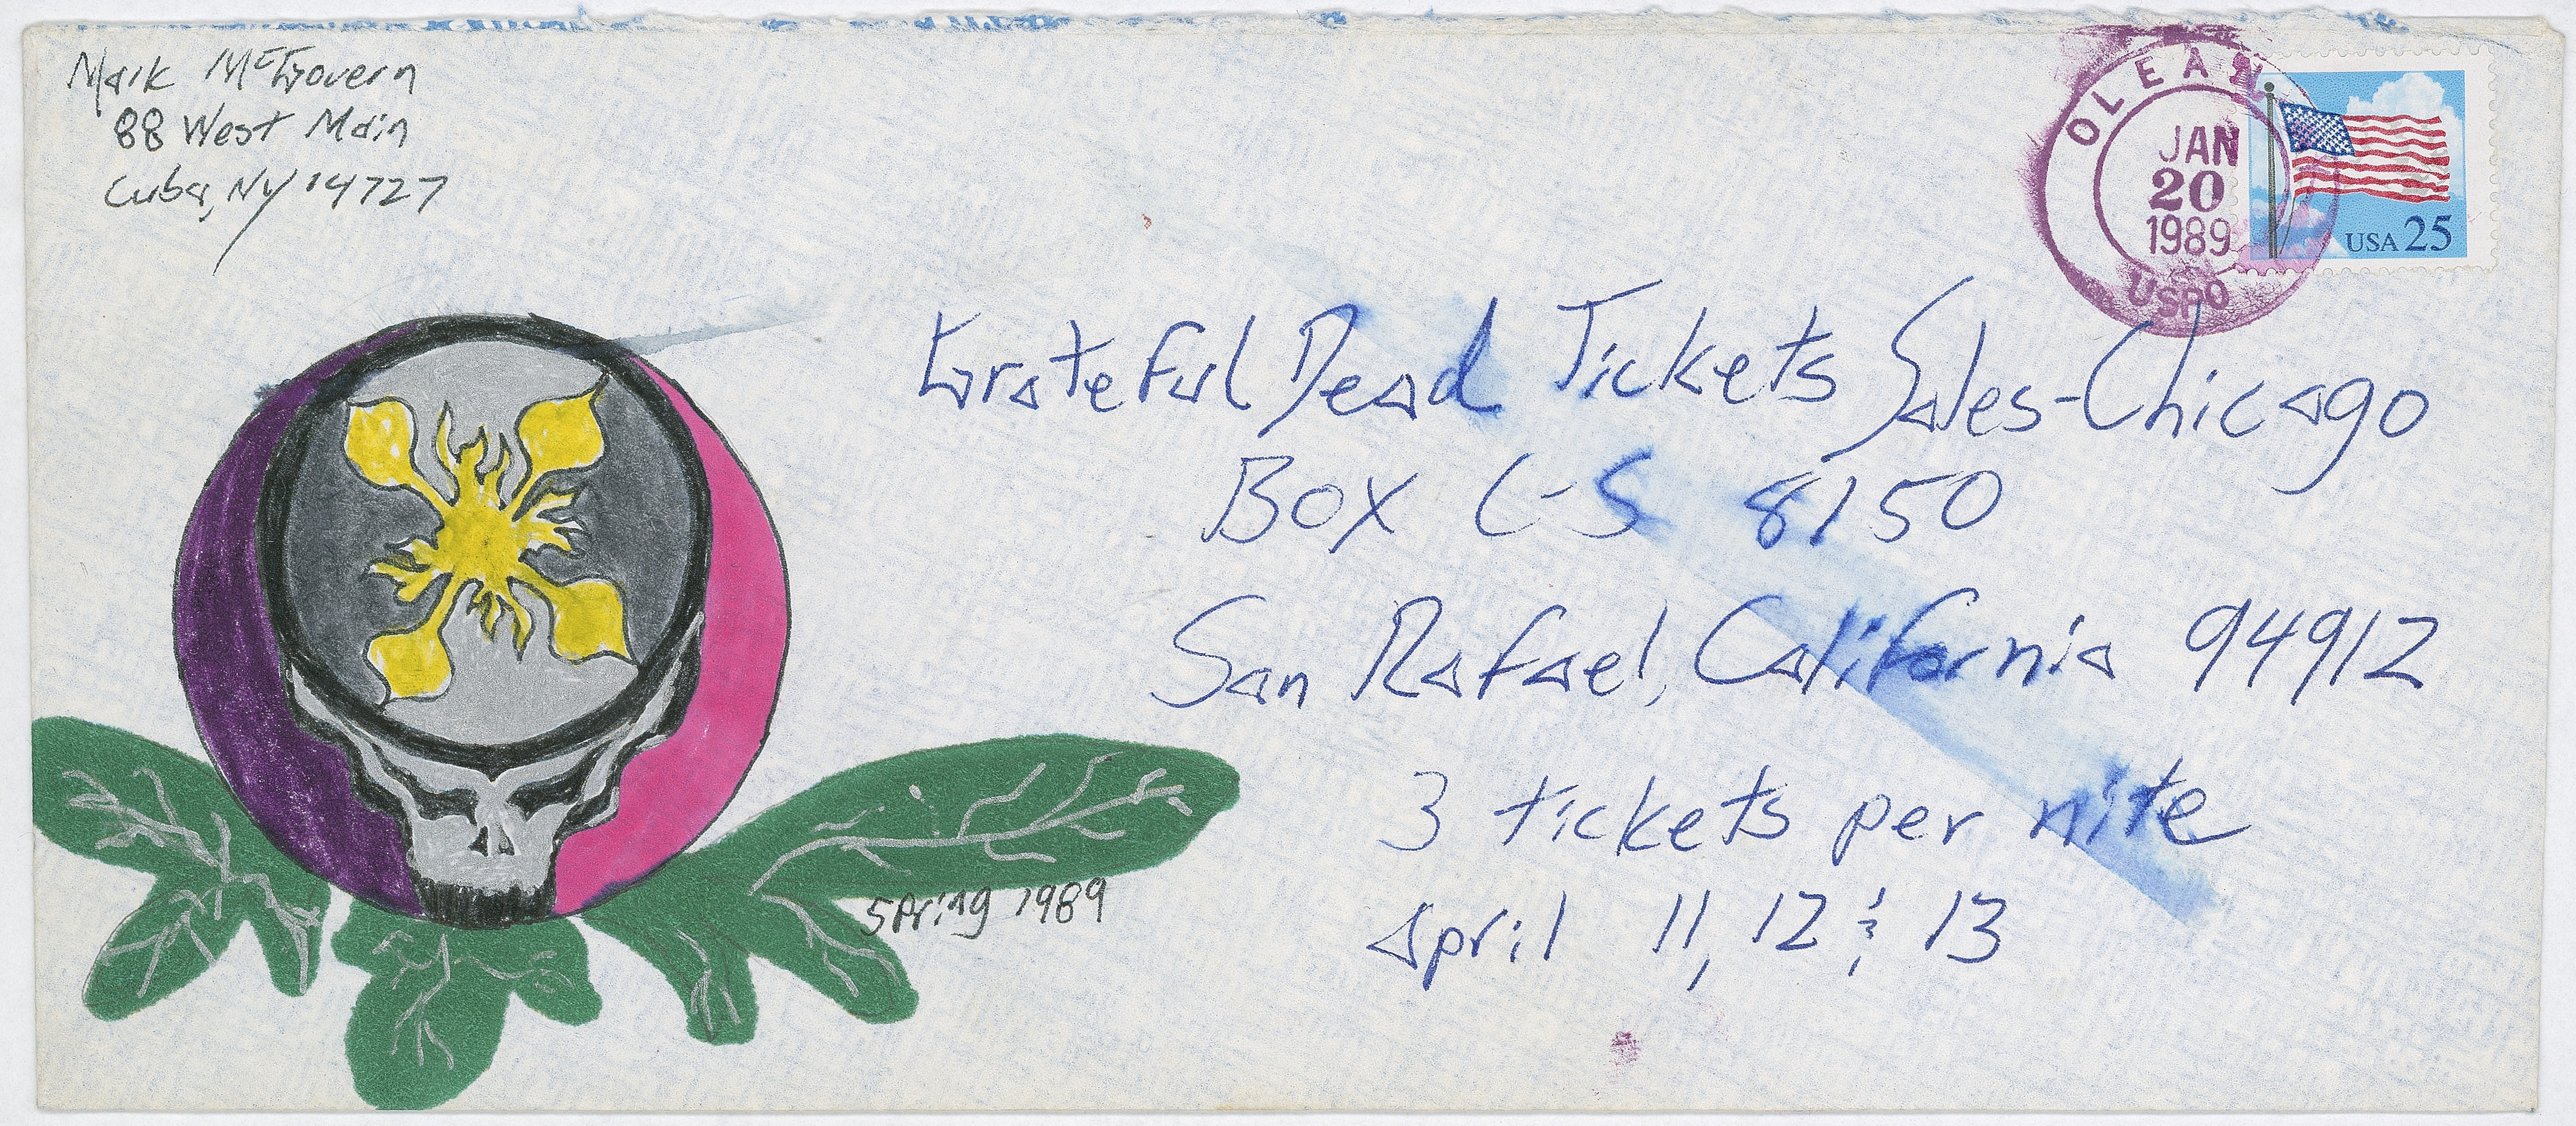 Mark McGovern
88 West Main
Cuba, NY 14727
OLEAN
JAN
20
1989
USPO
USA 25
Grateful Dead Tickets Sales-Chicago
BOX C-S 8150
San Rafael, California 94912
3 tickets per nite
April 11, 12 & 13
Spring 1989